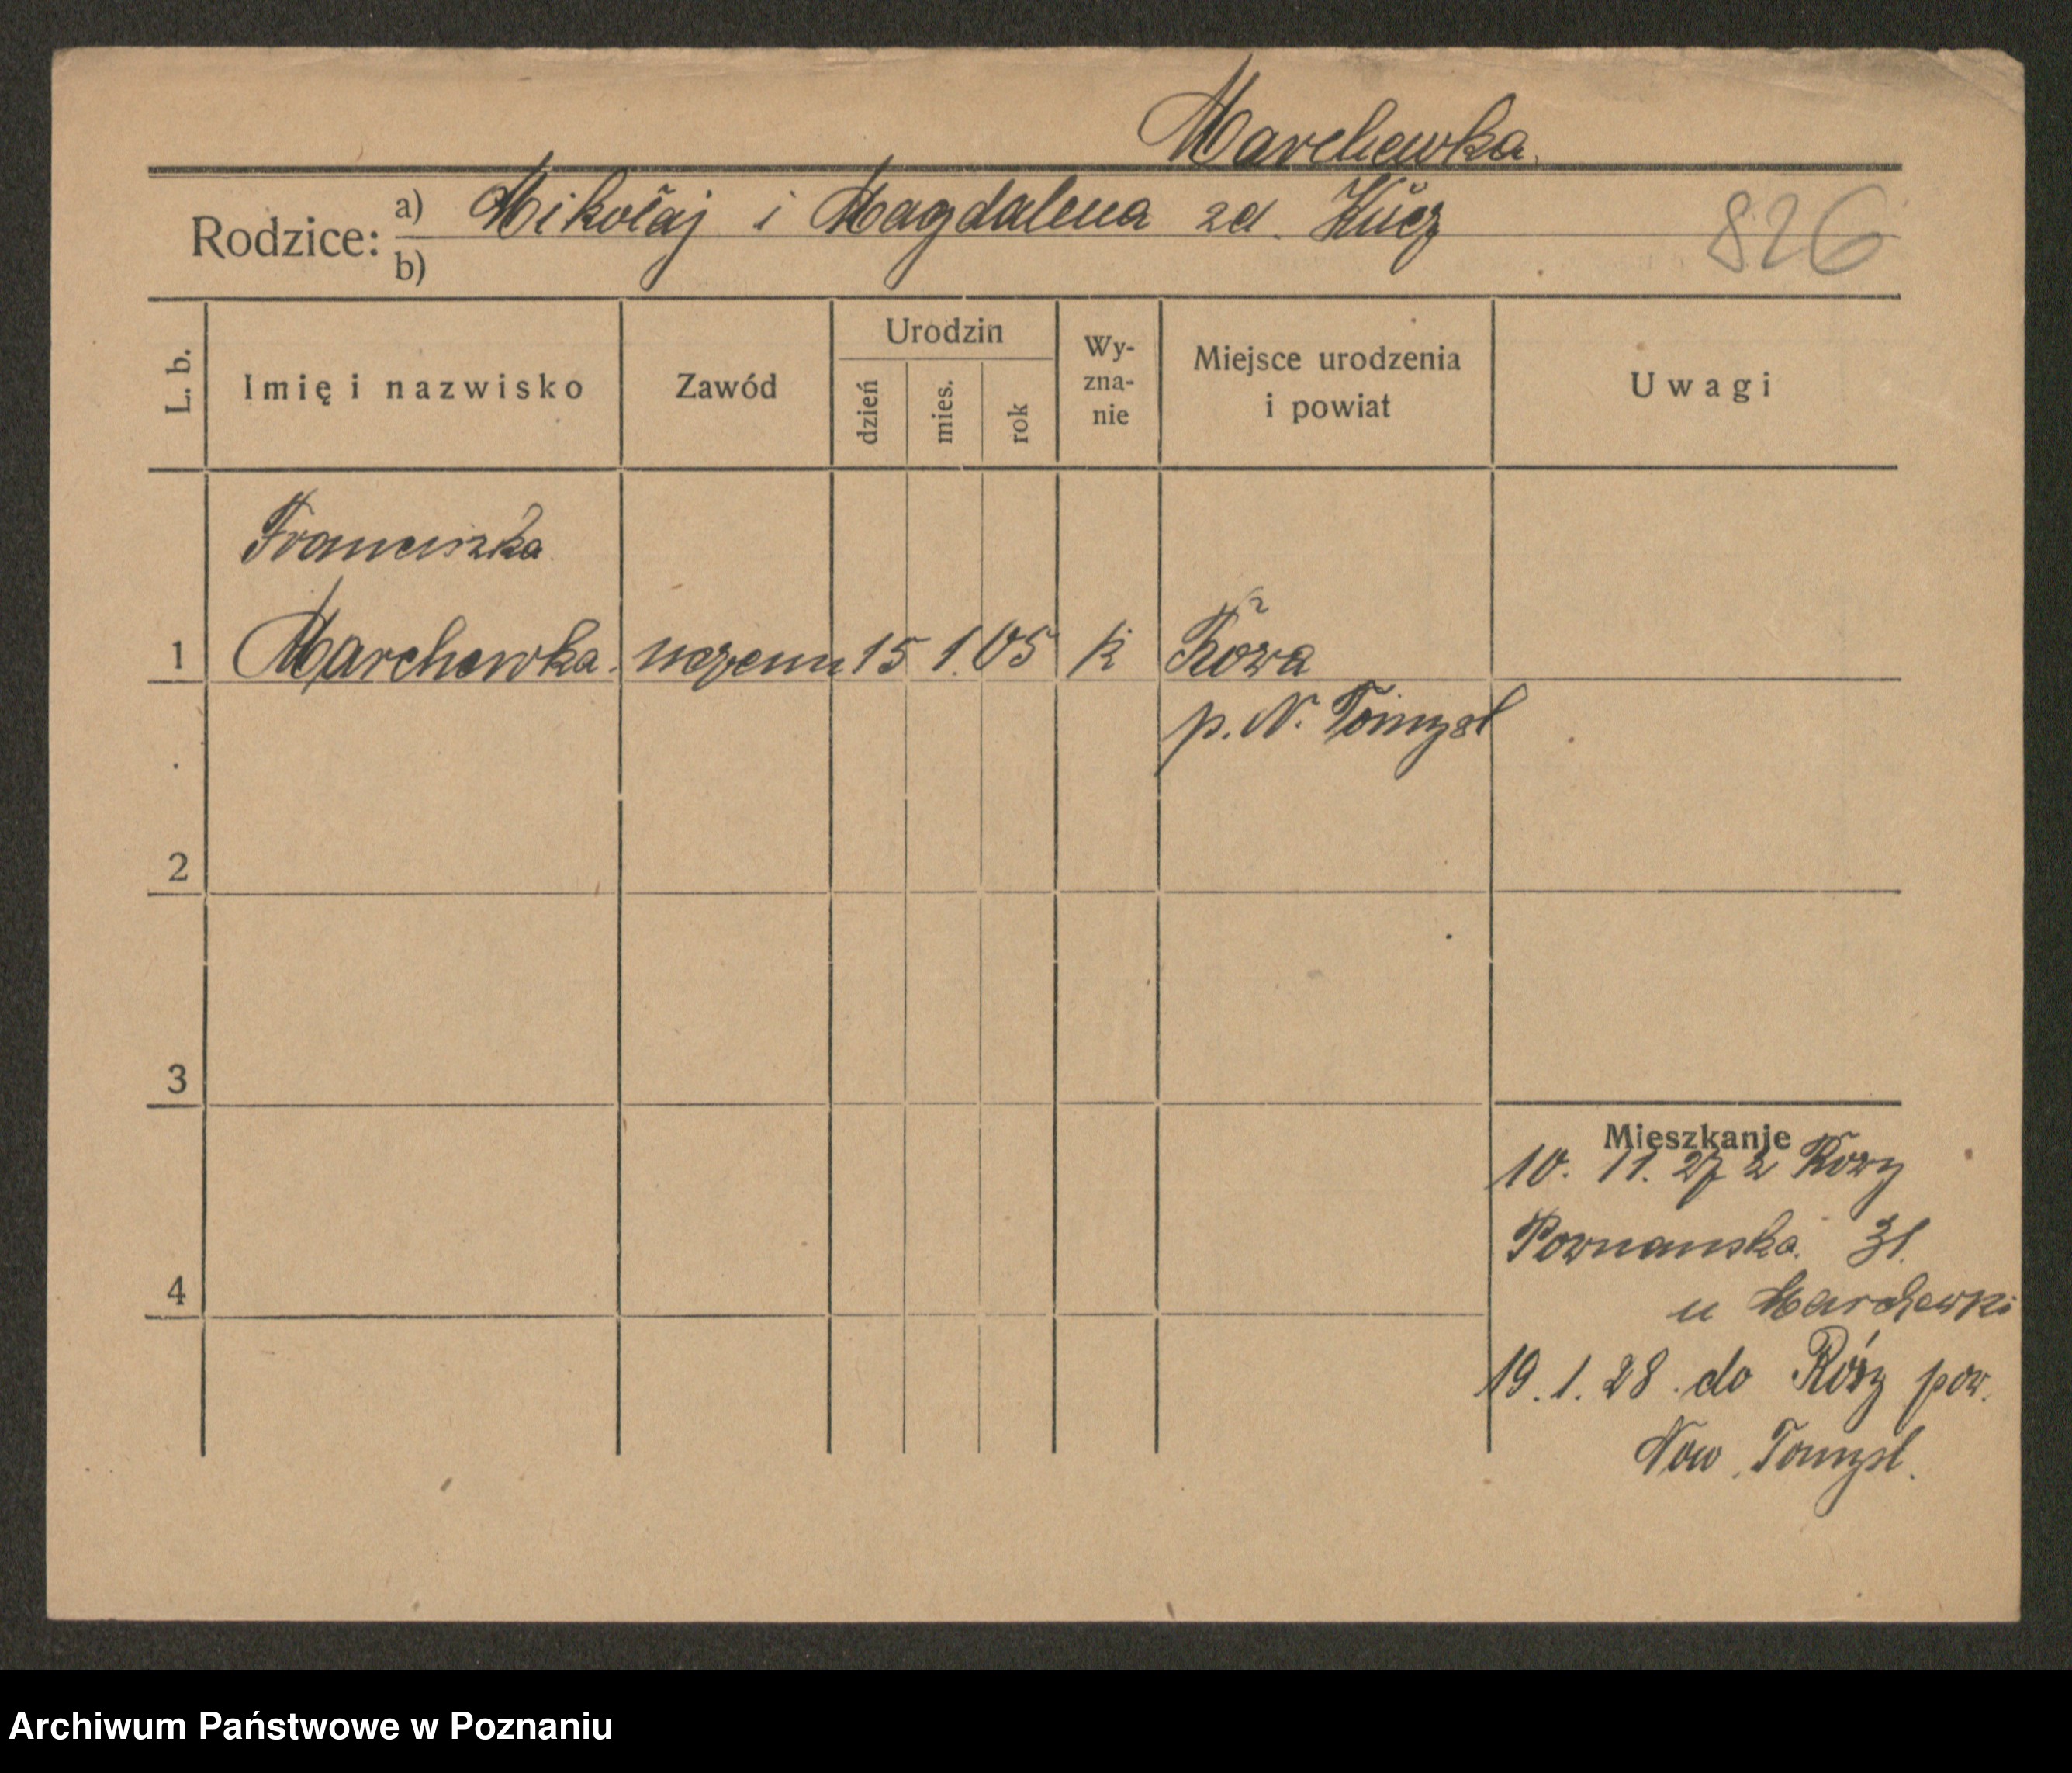 Marchewka.
Rodzice: a) Mikołaj i Magdalena zd. Kucz
b)
826
L. b. Imię i nazwisko Zawód Urodzin dzień mies. rok Wy-zna-nie Miejsce urodzenia i powiat Uwagi
Franciszka
1 Marchewka. uczenn 15 1. 05 k Róza
p. N. Tomysl
2
3
Mieszkanie
10. 11. 27 z Rozy
Poznanska 31.
4
u Marchewki
19. 1. 28. do Rózy pow.
Now. Tomysl.
Archiwum Państwowe w Poznaniu